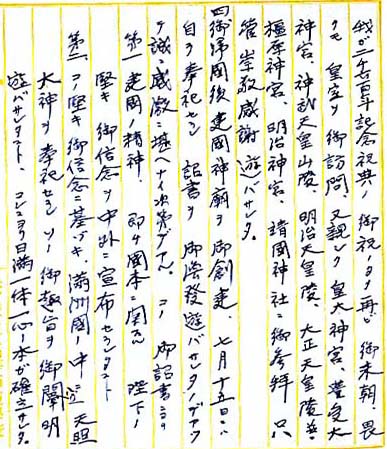 我ガ二千六百年記念祝典ノ御祝ノタメ再ビ御来朝、畏
クモ 皇室ヲ御訪問、又親シク皇大神宮、豊受大
神宮、神武天皇山陵、明治天皇陵、大正天皇陵並ニ
橿原神宮、明治神宮、靖國神社ニ御参拝 只
管崇敬感謝遊バサレタ。
四、御帰國後建國神廟ヲ御創建、七月十五日ニハ
自ラ奉祀セラレ 詔書ヲ御渙發遊バサレタノデアツ
テ誠ニ感激ニ堪ヘナイ次第デアル。コノ御詔書ニヨリ
第一 建國ノ精神 即チ國本ニ関スル 陛下ノ
堅キ御信念ヲ中外ニ宣布セラレタコト
第二、コノ堅キ御信念ニ基ヅキ、満洲國ノ中心ニ 天照
大神ヲ奉祀セラレ ソノ御趣旨ヲ御闡明
遊バサレタコト、コレニヨリ日満一体一心ノ本ガ確立サレタ。